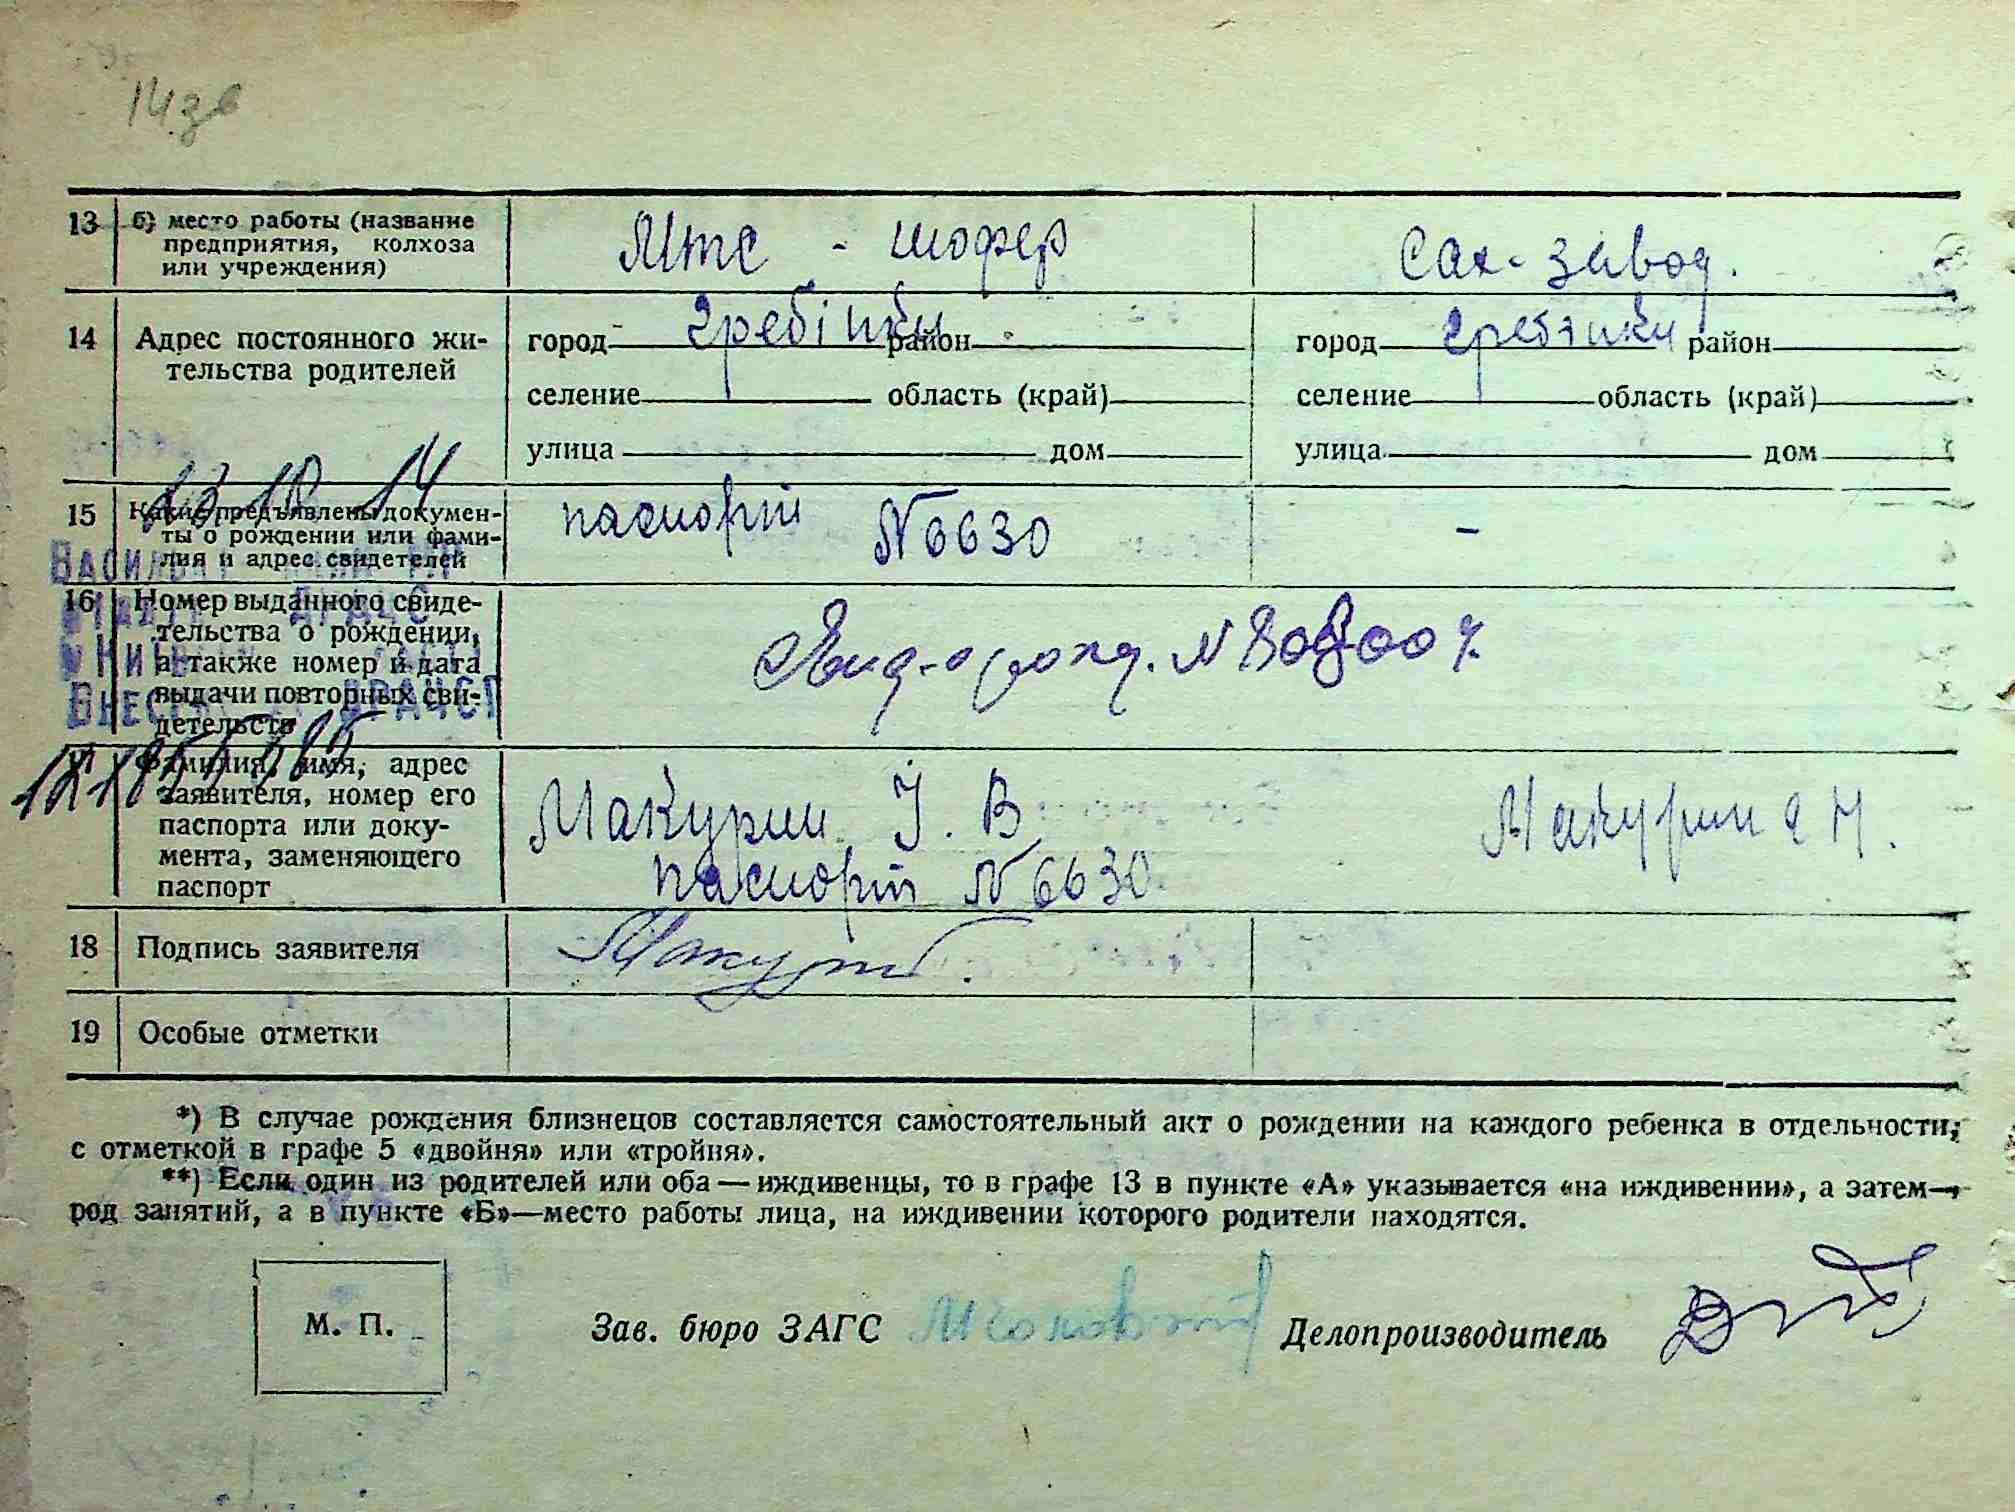 14 зв
13 б) место работы (название предприятия, колхоза или учреждения) Мтс - шофер Сах-завод.
14 Адрес постоянного жительства родителей
город Гребінки район город Гребінки район
селение область (край) селение область (край)
улица дом улица дом
15 Какие предъявлены документы о рождении или фамилия и адрес свидетелей паспорт N 6630 -
16 Номер выданного свидетельства о рождении, а также номер и дата выдачи повторных свидетельств
17 Фамилия, имя, адрес заявителя, номер его паспорта или документа, заменяющего паспорт
Макурин І. В. Макурин
паспорт N 6630
18 Подпись заявителя
19 Особые отметки
*) В случае рождения близнецов составляется самостоятельный акт о рождении на каждого ребенка в отдельности,
с отметкой в графе 5 «двойня» или «тройня».
**) Если один из родителей или оба — иждивенцы, то в графе 13 в пункте «А» указывается «на иждивении», а затем—
род занятий, а в пункте «Б»—место работы лица, на иждивении которого родители находятся.
М. П. Зав. бюро ЗАГС Делопроизводитель